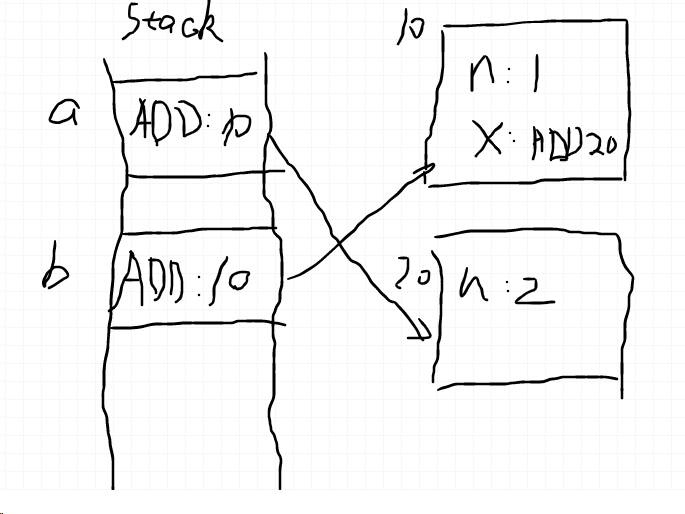 Stack
a
ADD: 10
b
ADD: 10
10
n: 1
X: ADD20
20
n: 2